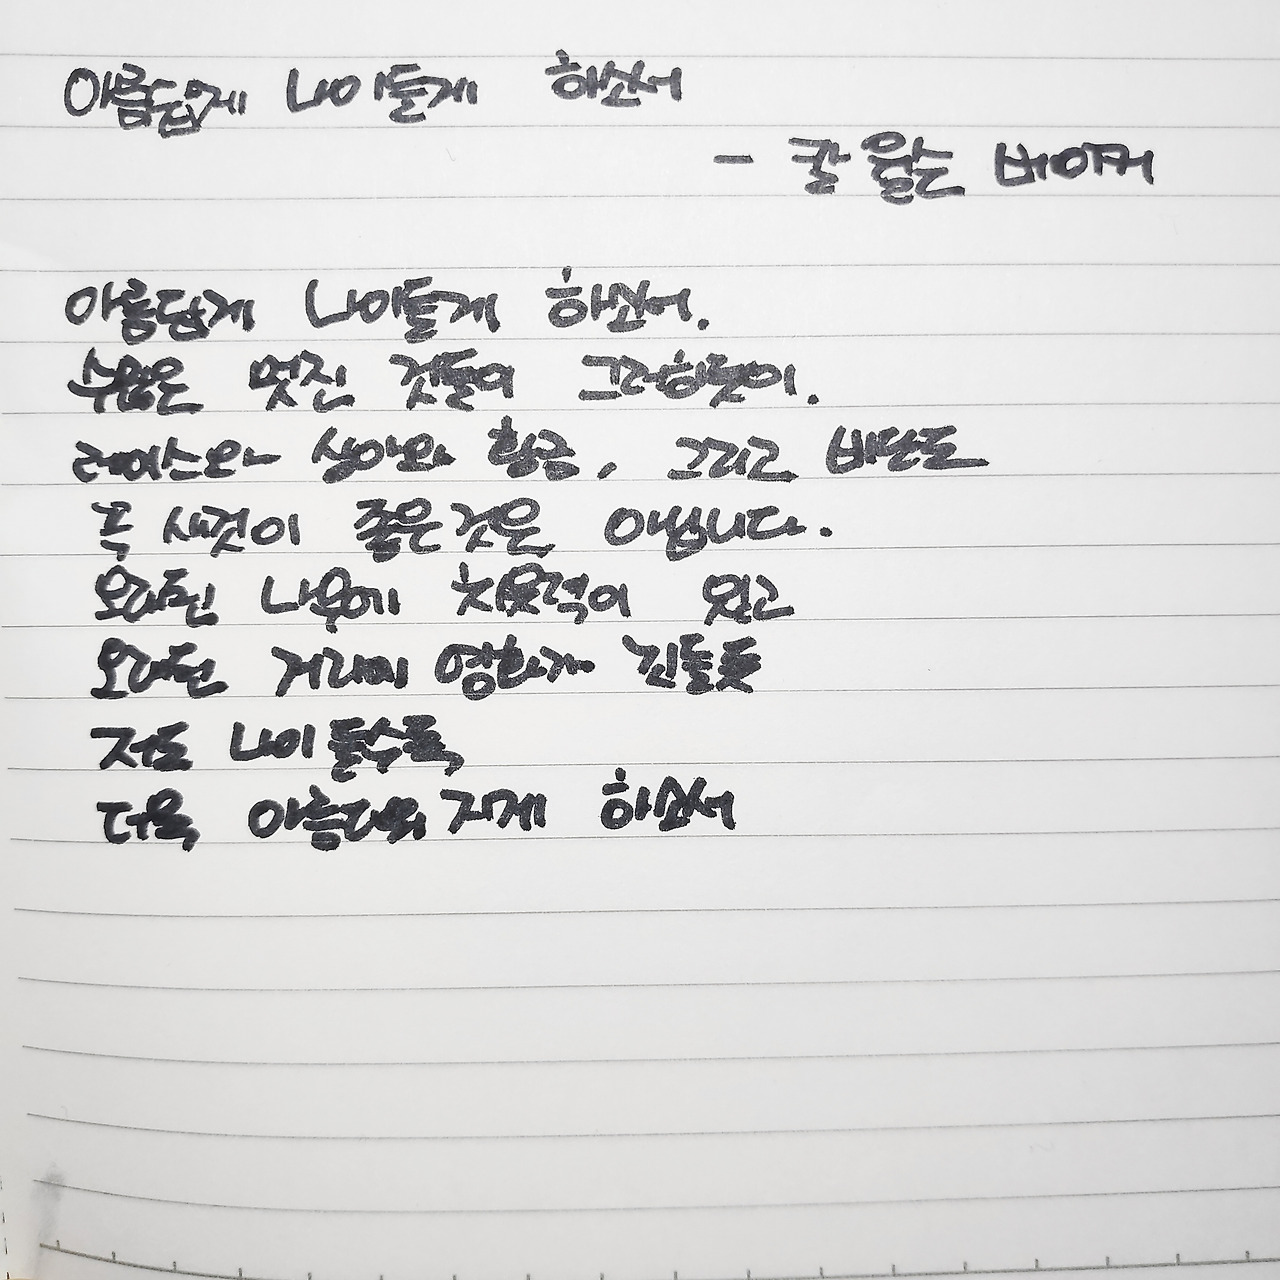 아름답게 나이들게 하소서
- 칼 윌슨 베이커
아름답게 나이들게 하소서.
수많은 멋진 것들이 그러하듯이.
레이스와 상아와 황금, 그리고 비단도
꼭 새것이 좋은것은 아닙니다.
오래된 나무에 치유력이 있고
오래된 거리에 영화가 깃들듯
저도 나이 들수록
더욱 아름다워지게 하소서